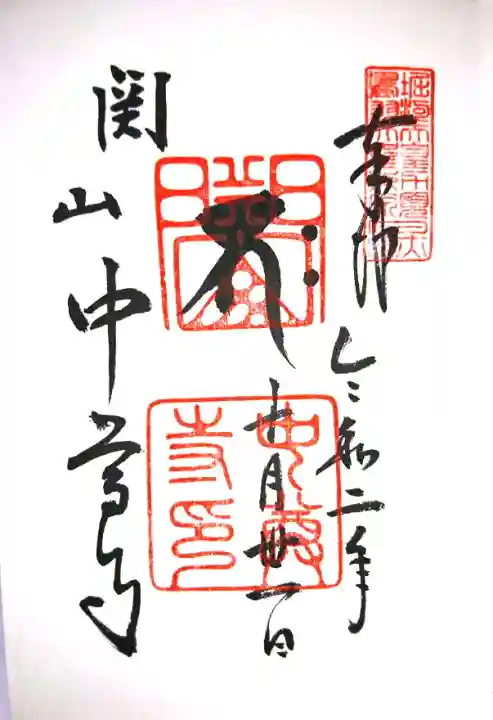 奉拝
令和二年
十月丗一日
中尊寺印
関山中尊寺